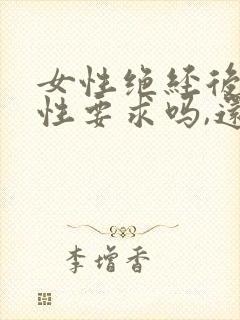 女性绝经後
性要求吗,還
李增香